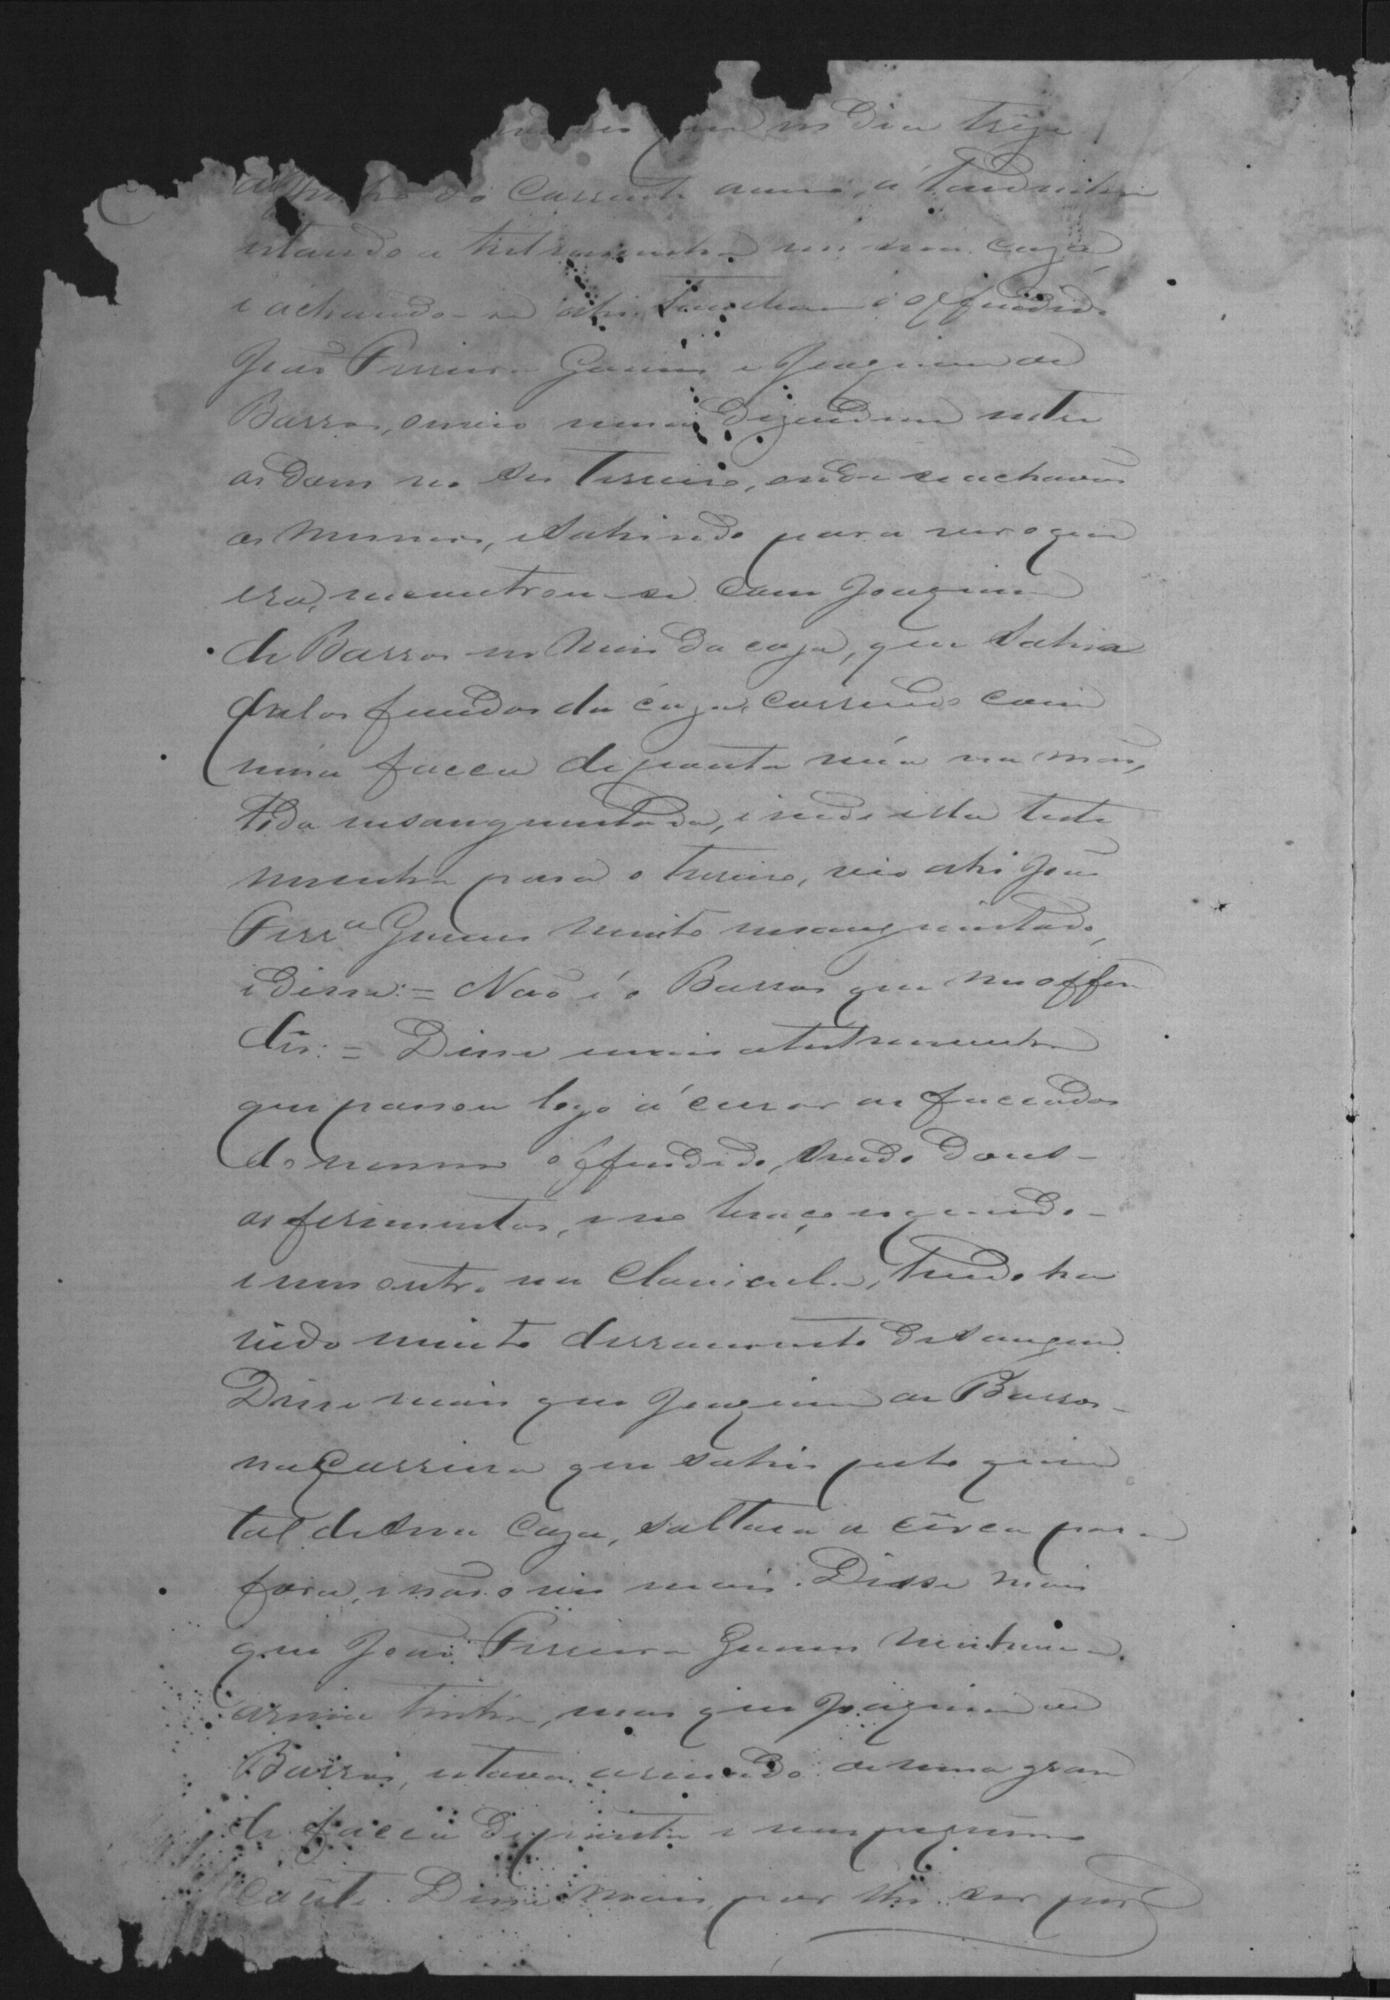 que no dia treze
do corrente anno, á tardinha
estando a testemunha em sua caza,
e achando-se ahi tambem o offendido
João Ferreira Gomes e Joaquim de
Barros, ouvio uma dizendem entre
os dous no seu terreiro, onde se achavão
os mesmos, e sahindo para ver o que
era, encontrou-se com Joaquim
de Barros no meio da caza, que sahia
pelos fundos da caza, correndo com
uma facca de ponta núa na mão,
toda ensanguentada, e indo ella teste
munha para o terreiro, vio ahi João
Ferrª Gomes muito ensanguentado,
e disse: = Não é o Barros que me offen
deo: = Disse mais a testemunha
que passou logo á curar as faccadas
do mesmo offendido, sendo dous
os ferimentos, um no braço esquerdo
e um outro na clavicula, tendo ha
vido muito derramento de sangue.
Disse mais que Joaquim de Barros
na carreira que sahio pelo quin
tal de sua caza, saltara a cêrca para
fora, e não o vio mais. Disse mais
que João Ferreira Gomes nenhuma
arma tinha, mas que Joaquim de
Barros, estava armado de uma gran
de facca de ponta e um pequeno
cacête. Disse mais por lhe ser per